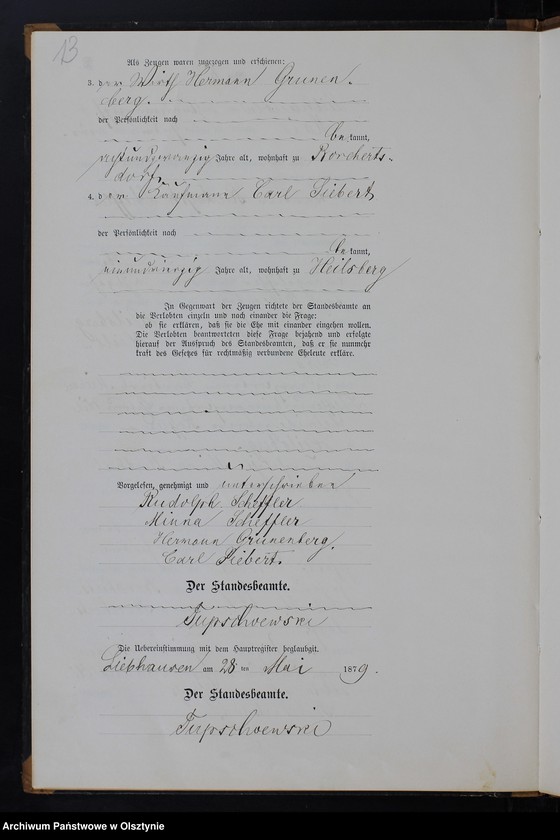 13
Als Zeugen waren zugezogen und erschienen:
3. der Wirth Hermann Grunen-
berg.
der Persönlichkeit nach
be kannt,
achtundzwanzig Jahre alt, wohnhaft zu Borcherts-
dorf,
4. der Kaufmann Carl Siebert
der Persönlichkeit nach
be kannt,
Jahre alt, wohnhaft zu Heilsberg
In Gegenwart der Zeugen richtete der Standesbeamte an
die Verlobten einzeln und nach einander die Frage:
ob sie erklären, daß sie die Ehe mit einander eingehen wollen.
Die Verlobten beantworteten diese Frage bejahend und erfolgte
hierauf der Ausspruch des Standesbeamten, daß er sie nunmehr
kraft des Gesetzes für rechtmäßig verbundene Eheleute erkläre.
Vorgelesen, genehmigt und unterschrieben
Rudolph Scheffler
Minna Scheffler
Hermann Grunenberg.
Carl Siebert.
Der Standesbeamte.
Tupschoewski
Die Uebereinstimmung mit dem Hauptregister beglaubigt.
Liebhausen am 28 ten Mai 1879.
Der Standesbeamte.
Tupschoewski
Archiwum Państwowe w Olsztynie